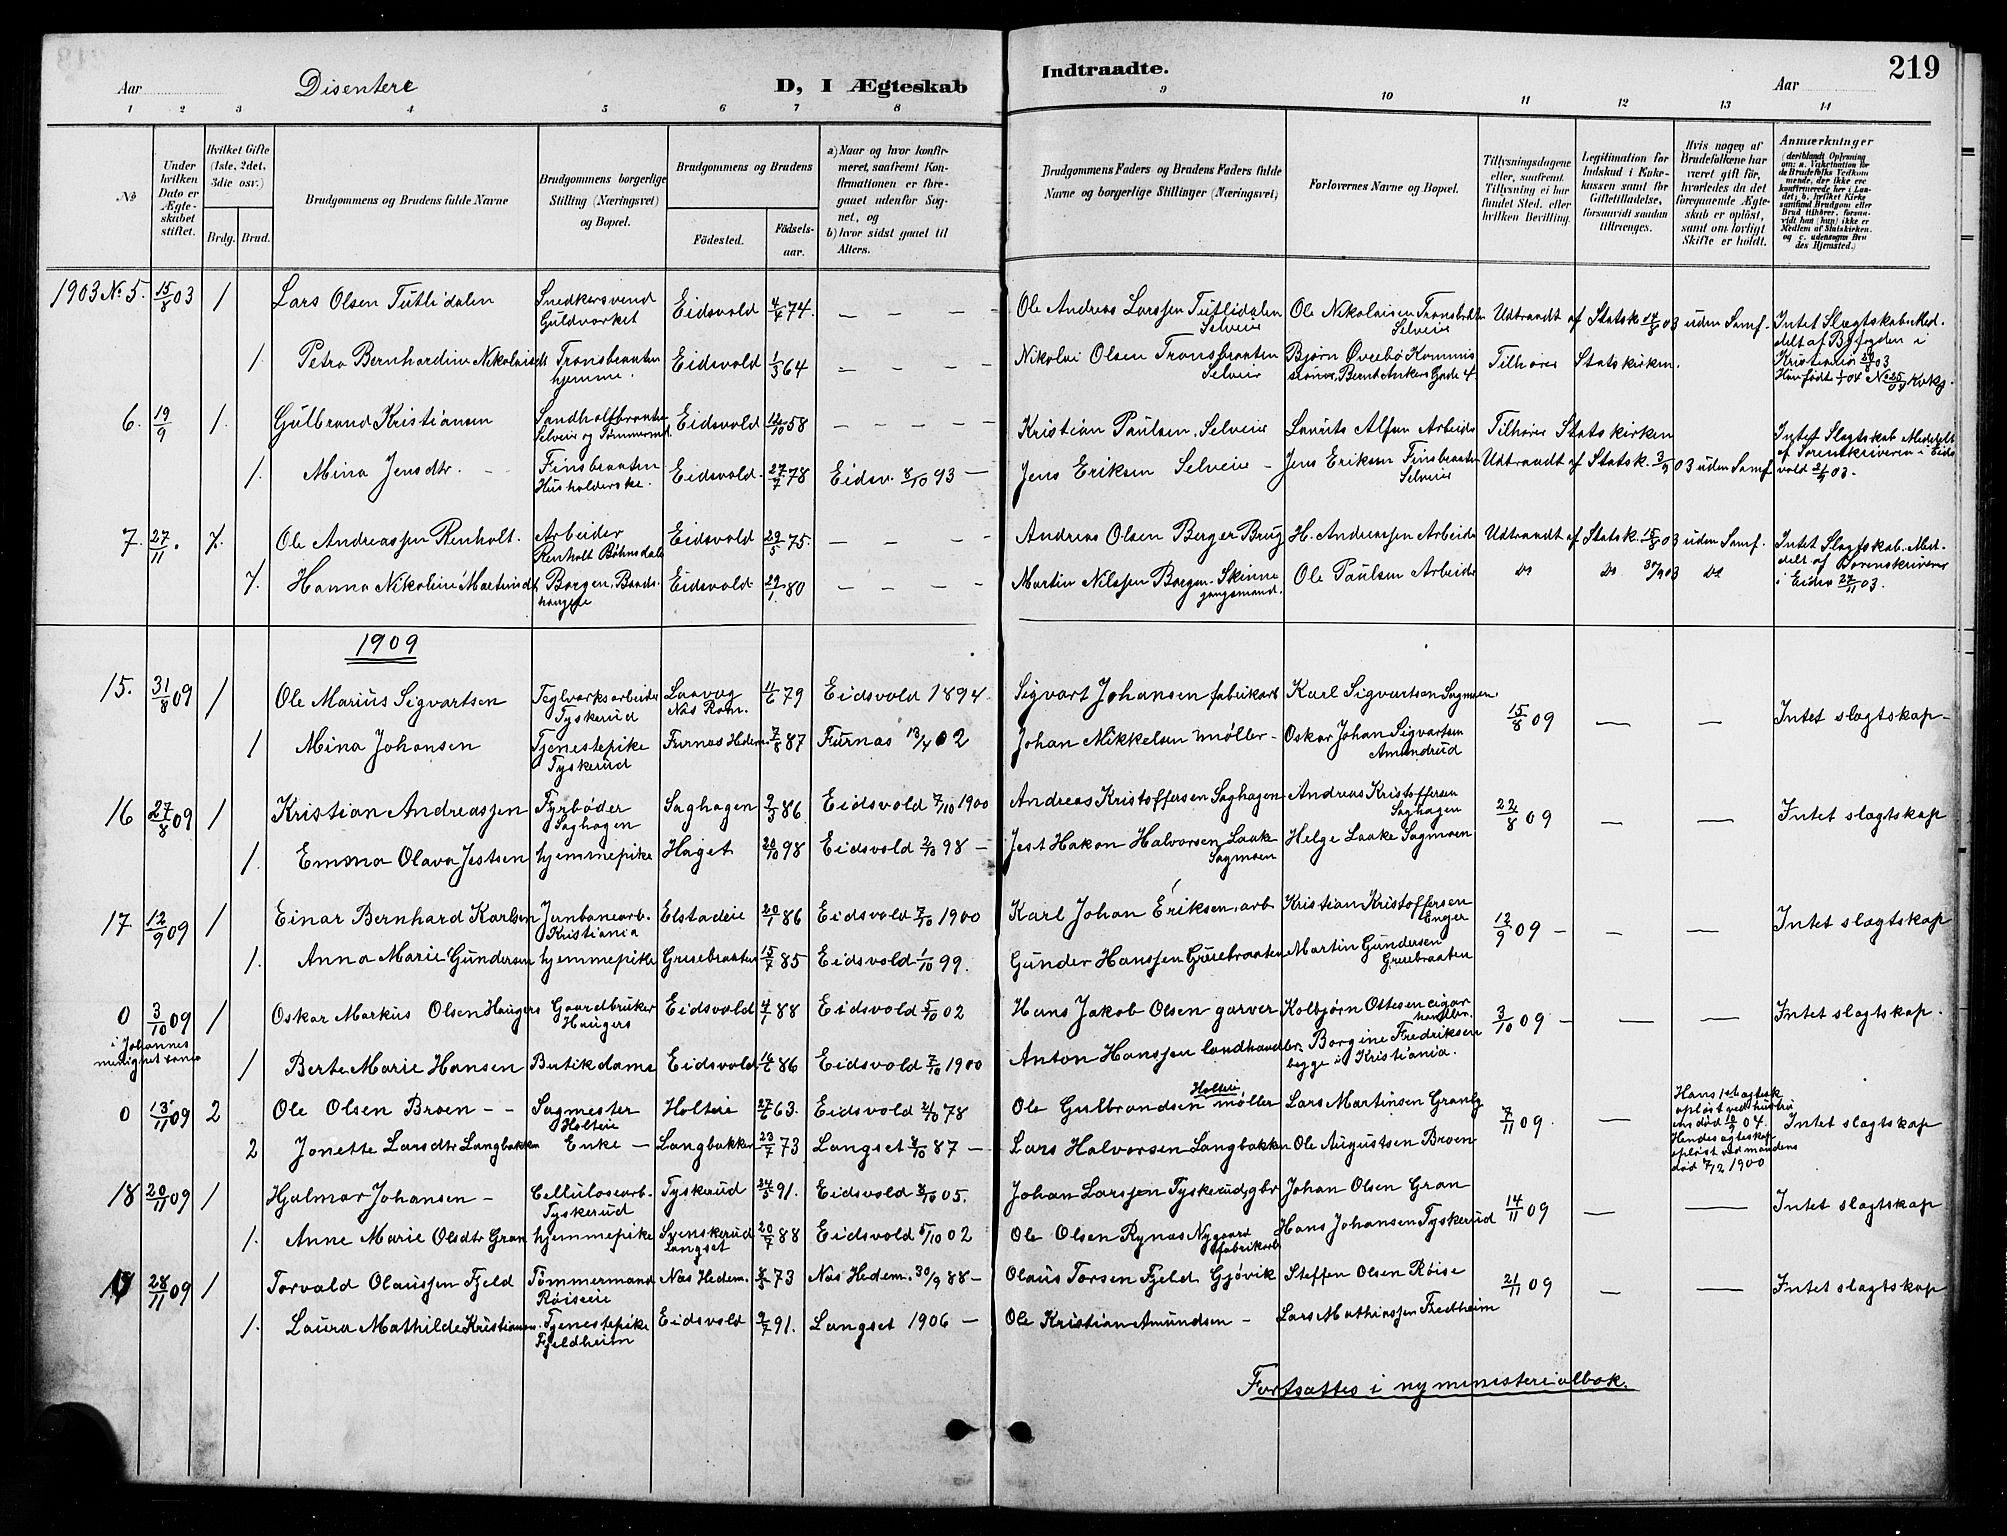 219
Aar Disentere D, I Ægteskab Indtraadte. Aar
1 2 3 4 5 6 7 8 9 10 11 12 13 14
No
Under hvilken Dato er Ægteskabet stiftet.
Hvilket Gifte (1ste, 2det, 3die osv.)
Brdg. Brud.
Brudgommens og Brudens fulde Navne
Brudgommens borgerlige Stilling (Næringsvei) og Bopæl.
Brudgommens og Brudens
Födested.
Födselsaar.
a) Naar og hvor konfirmeret, saafremt Konfirmationen er foregaaet udenfor Sognet, og
b) hvor sidst gaaet til Alters.
Brudgommens Faders og Brudens Faders fulde Navne og borgerlige Stillinger (Næringsvei)
Forlovernes Navne og Bopæl.
Tillysningsdagene eller, saafremt Tillysning ei har fundet Sted, efter hvilken Bevilling.
Legitimation for Indskud i Enkekassen samt for Giftetilladelse, forsaavidt saadan tiltrænges.
Hvis nogen af Brudefolkene har været gift før, hvorledes da det foregaaende Ægteskab er oplöst, samt om lovligt Skifte er holdt.
Anmærkninger (deriblandt Oplysning om: a. Vakcination for de Brudefolks Vedkommende, der ikke ere konfirmerede her i Landet; b. hvilket Kirkesamfund Brudgom eller Brud tilhörer, forsaavidt han (hun) ikke er Medlem af Statskirken, og c. udensogns Brudes Hjemsted.)
1903 No 5. 15/8 03 1 Lars Olsen Tutlidalen Snedkersvend Guldværket Eidsvold 4/4 74. — — — — Ole Andreas Larssen Tutlidalen Selveier Ole Nikolaisen Tronsbråten Selveier Udtraadt af Statsk. 14/8 03 uden Samf. Intet Slægtskab. Meddelt af Byfogden i
1. Petra Bernhardine Nikolaisdt Tronsbraaten hjemme. Eidsvold 1/3 64 — — — — Nikolai Olsen Tronsbraaten Selveier Bjørn Øverbö Kommissionær, Bernt Ankers Gade 4. Tilhører Statskirken. Kristiania
6. 19/9 1. Gulbrand Kristiansen Selveier og Tømmermd. Eidsvold 12/10 58 — — — — Kristian Paulsen, Selveier Lauritz Alfsen Arbeider Tilhører Statskirken Intet Slægtskab Meddelt af Sorenskriveren i Eidsvold
1. Mina Jensdtr. — Finsbraaten Husholderske. Eidsvold. 27/7 78 Eidsv. 8/10 93 — Jens Eriksen Selveier — Jens Eriksen Finsbraaten Selveier Udtraadt af Statsk. 3/9 03 uden Samf.
7. 27/11. 1. Ole Andreassen Renholt. Arbeider Renholt Bøhnsdalen Eidsvold 29/5 75. — — — — Andreas Olsen Berger Brug H. Andreassen Arbeider Udtraadt af Statsk. 15/8 03 uden Samf. Intet Slægtskab. Meddelt af Sorenskriveren
1. Hanna Nikoline Martinsdt. Borgen, Eidsvold 29/1 80 — — — — Martin Nilssen Borgen. Skinnegangsmand. Ole Paulsen Arbeider do do do i Eidsv. 27/11 03.
1909
15. 31/8 09 1 Ole Marius Sigvartsen Teglværksarbeider Tyskerud Laavag Næs Rom. 11/6 79 Eidsvold 1894. Sigvart Johansen fabrikarb Karl Sigvartsen Sagmoen 15/8 09 — — Intet slægtskap —
1 Mina Johansen Tjenestepike Tyskerud Furnæs Hedem. 7/8 87 Furnæs 13/4 02 Johan Mikkelsen møller — Oskar Johan Sigvartsen Amundrud
16 27/8 09 1 Kristian Andreassen Fyrbøder Saghagen Saghagen 9/3 86. Eidsvold 7/10 1900 Andreas Kristoffersen Saghagen Andreas Kristoffersen Saghagen 22/8 09 — — Intet slægtskap
1. Emma Olava Jestsen hjemmepike Haget 20/10 98 Eidsvold 2/10 98 — Jest Hakon Halvorsen Laake Sagmoen Helge Laake Sagmoen
17 12/9 09 1 Einar Bernhard Karlsen Jernbanearb. Kristiania Elstadeie 20/1 86 Eidsvold 7/10 1900 Karl Johan Eriksen, arb Kristian Kristoffersen Enger 12/9 09 — — — Intet slægtskap
1. Anna Marie Gundersen hjemmepike Gruebraaten 15/7 85 Eidsvold 1/10 99. Gunder Hanssen Gruebraaten Martin Gundersen Gruebraaten
0 3/10 09 1 Oskar Markus Olsen Haugers Gaardbruker Haugers Eidsvold 4/1 88 Eidsvold 5/10 02 Hans Jakob Olsen garver Kolbjørn Ottesen cigarhandler. 3/10 09 — — — Intet slægtskap.
i Johannes menighet
1 Berte Marie Hansen Butikdame Eidsvold 14/6 86 Eidsvold 7/10 1900 Anton Hanssen landhandler. Borgine Fredriksen begge i Kristiania.
0 13/11 09 2 Ole Olsen Broen — — Sagmester Holteie Holteie 27/6 63. Eidsvold 78 Ole Gulbrandsen Holteie møller Lars Martinsen Granly 7/11 09 — Hans 1ste egtesk. opløst ved hustruens død 04. Hendes egteskap opløst ved mandens død 7/12 1900 Intet slægtskap
2 Jonette Larsdtr Langbakken Enke — Langbakken 23/7 73 Langset 87 — Lars Halvorsen Langbakken Ole Augustsen Broen
18 20/11 09 1 Hjalmar Johansen — Cellulosearb. Tyskerud Tyskerud 24/5 91. Eidsvold 05. Johan Larssen Tyskerud, gbr Johan Olsen Gran 14/11 09 — — Intet slægtskap
1. Anne Marie Olsdtr Gran hjemmepike Svenskerud Langset 20/7 88 Eidsvold 5/10 02 Ole Olsen Rynas Nygaard fabrikarb Hans Johansen Tyskerud
19 28/11 09 1 Torvald Olaussen Fjeld Tömmermand Röiseie Næs Hedem. 73 Næs Hedem. 30/9 88 — Olaus Torsen Fjeld Gjøvik Steffen Olsen Röise 21/11 09 — — Intet slægtskap
1. Laura Mathilde Kristiansen. Tjenestepike Fjeldheim Eidsvold 2/7 91. Langset 1906 — Ole Kristian Amundsen — Lars Mathiassen Fredheim
Fortsættes i ny ministerialbok.